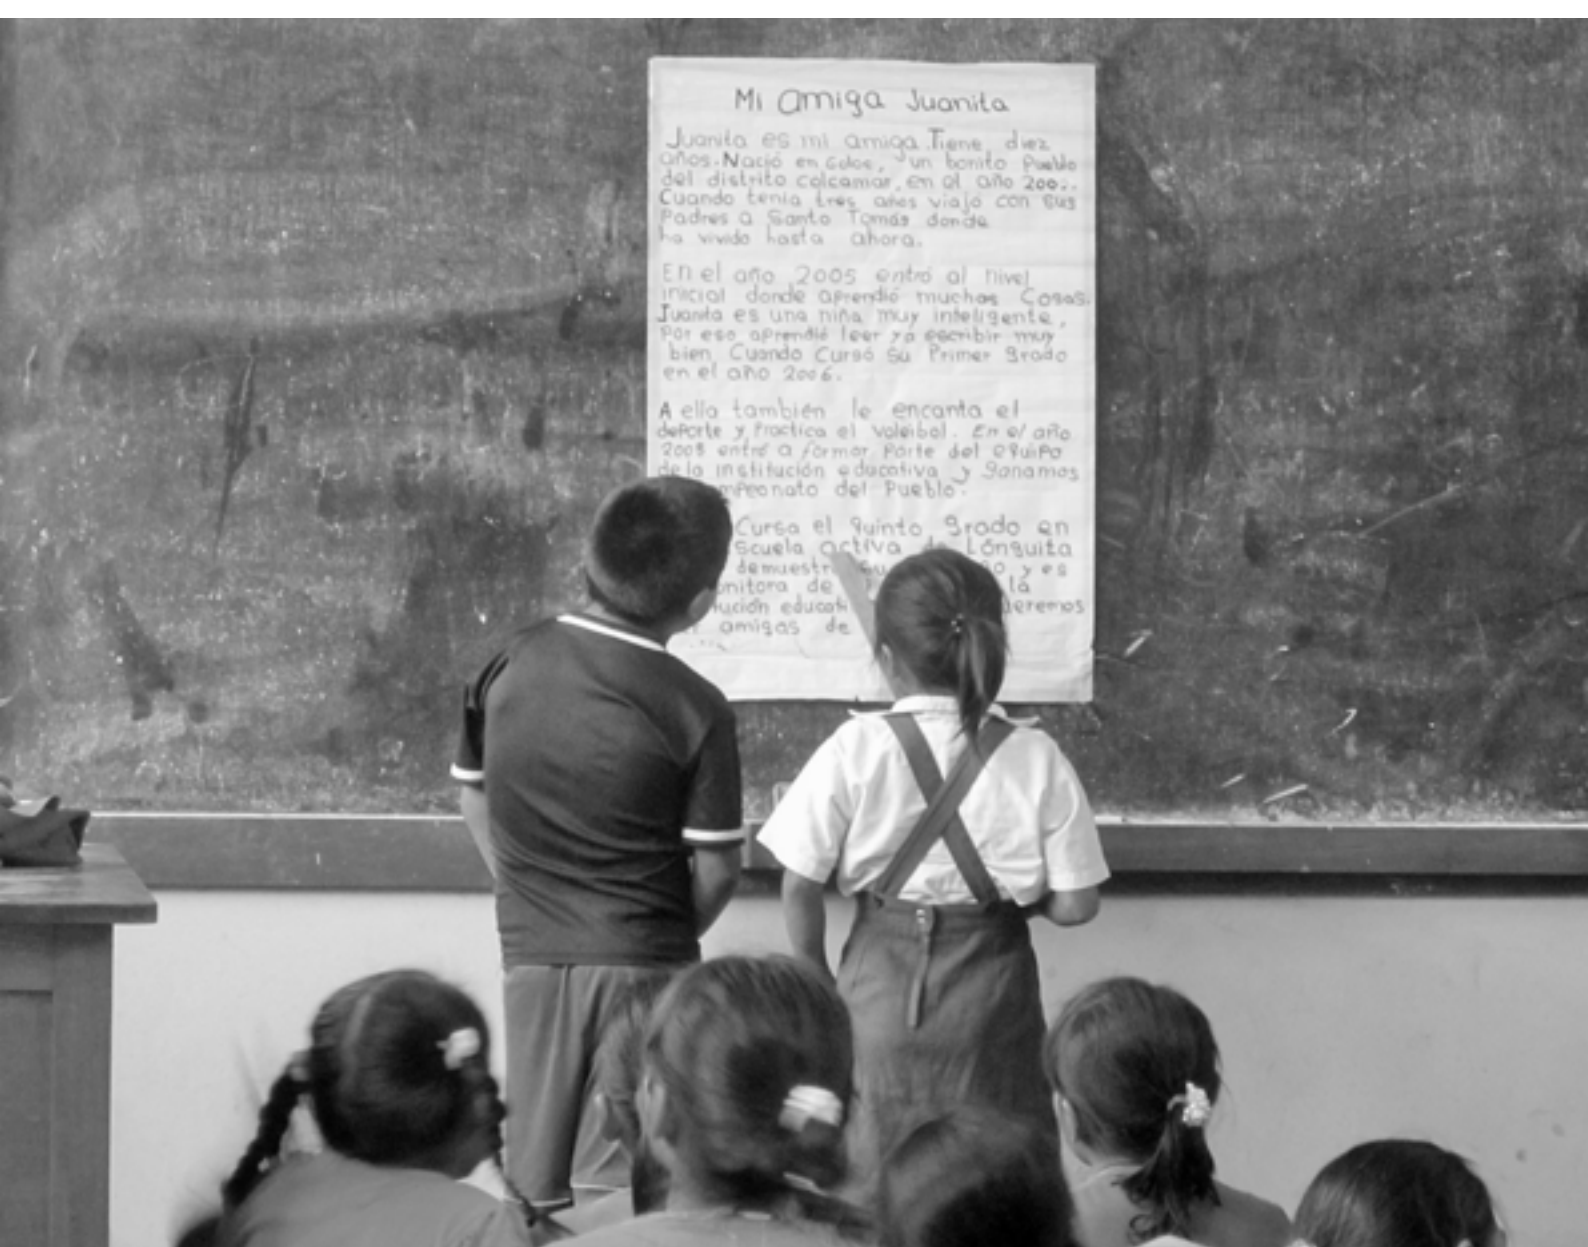 Mi amiga Juanita
Juanita es mi amiga. Tiene diez
años. Nació en Colos, un bonito Pueblo
del distrito colcamar, en el año
Cuando tenía tres años viajó con sus
Padres a Santo Tomás donde
ha vivido hasta ahora.
En el año 2005 entró al nivel
inicial donde aprendió muchas Cosas.
Juanita es una niña muy inteligente,
Por eso aprendió leer ya escribir muy
bien Cuando Cursó Su Primer grado
en el año 2006.
A ella también le encanta el
deporte y Practica el voleibol. En el año
entró a formar Parte del equipo
de la institución educativa y ganamos
del Pueblo.
Cursa el quinto grado en
activa de Lónguita
y es
de la
amigas de